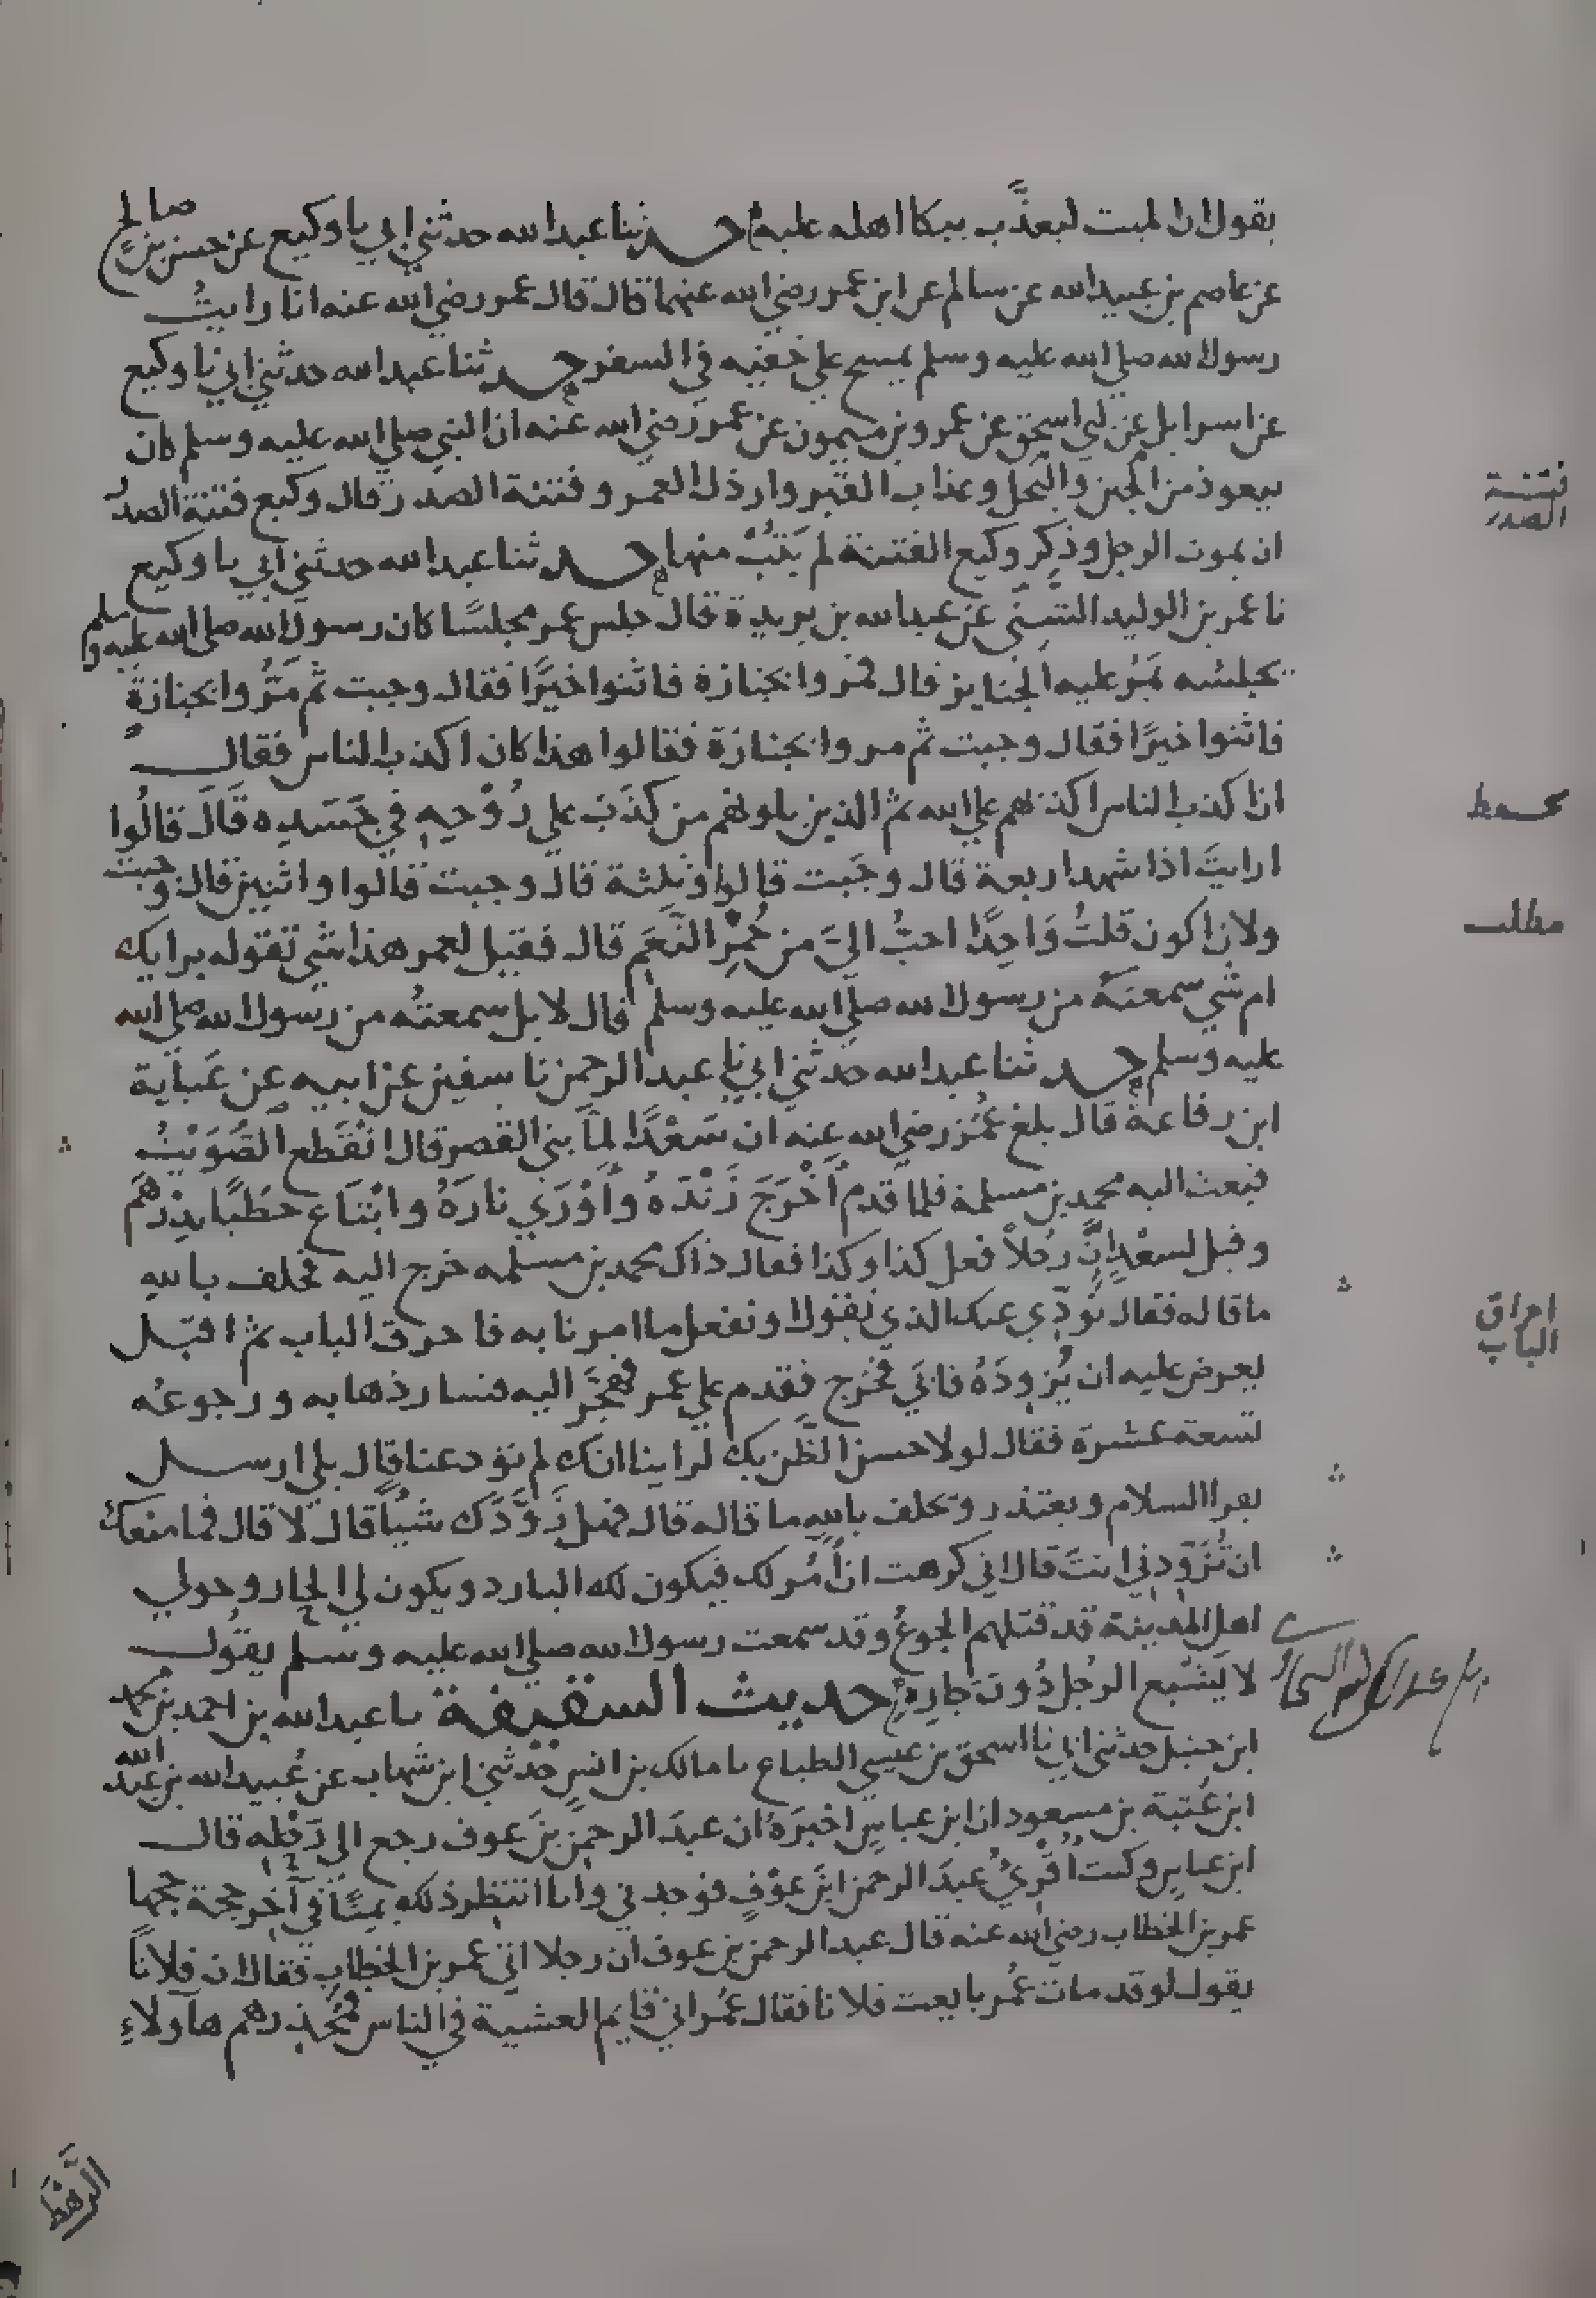 يقول ان الميت ليعذَّب ببكا اهله عليه حدثنا عبدالله حدثني ابي نا وكيع عن حسن بن صالح
عن عاصم بن عبيدالله عن سالم عن ابن عمر رضي الله عنهما قال قال عمر رضي الله عنه انا رايتُ
رسول الله صلي الله عليه وسلم يمسح علي خفيه في السفر حدثنا عبدالله حدثني ابي نا وكيع
عن اسرايل عن ابي اسحق عن عمرو بن ميمون عن عمر رضي الله عنه ان النبي صلي الله عليه وسلم كان
يتعوذ من الجبن والبخل وعذاب القبر وارذل العمر وفتنة الصدر قال وكيع فتنة الصدر
ان يموت الرجل وذكر وكيع الفتنة لم يَتُبْ منها حدثنا عبدالله حدثني ابي نا وكيع
نا عمر بن الوليد الشني عن عبدالله بن بريدة قال جلس عمر مجلسًا كان رسول الله صلي الله عليه وسلم
يجلسه تَمُر عليه الجنايز قال فمروا بجنازة فاثنوا خيرًا فقال وجبت ثم مَرُّوا بجنازةٍ
فاثنوا خيرًا فقال وجبت ثم مروا بجنازة فقالوا هذا كان اكذب الناس فقال
ان اكذب الناس اكذبهم علي الله ثم الذين يلونهم من كذَبَ علي رُوْحِهِ في جَسَدِه قَالَ قالُوا
ارايتَ اذا شهد اربعة قال وجَبت قالوا وثلثة قال وجبت قالوا واثنين قال وجبت
ولان اكون قلتُ وَاحِدًا احبُّ اليَّ من حُمْرِ النَّعَم قال فقيل لعمر هذا شي تقوله برايك
ام شي سمعتَهُ من رسول الله صلي الله عليه وسلم قال لا بل سمعتُه من رسول الله صلي الله
عليه وسلم حدثنا عبدالله حدثني ابي نا عبد الرحمن نا سفين عن ابيه عن عَبَاية
ابن رفاعة قال بلغ عُمَر رضي الله عنه ان سَعْدًا لمَّا بني القصر قال انْقَطع الصُّوَيْتُ
فبعث اليه محمد بن مسلمة فلما قدم اَخْرَجَ زَنْدَهُ وَاَوْرَي نارَهُ وابْتَاع حطَبًا بدِرْهَم
وقيل لسعْدٍ اِنَّ رجلاً فعل كذا وكذا فقال ذاك محمد بن مسلمه خرج اليه فحلف بالله
ما قاله فقال نُؤدِّي عنك الذي تقول ونفعل ما امرنا به فاحرق الباب ثم اقبَل
يعرض عليه ان يُزوِدَهُ فابَي فخرج فقدم علي عمر فهجَّر اليه فسار ذهابه ورجوعُه
تسعة عشرة فقال لولا حسن الظَّن بك لراينا انك لم تؤد عنا قال بلي ارسل
يقرا السلام ويعتذر ويحلف بالله ما قاله قال فهل زَوَّدَك شيًا قال لا قال فما منعك
ان تُزَوِّدِني انتَ قال اني كرهت ان اٰمُر لك فيكون لك البارد ويكون لي الحار وحولي
اهل المدينة قد قتلهم الجوعُ وقد سمعت رسول الله صلي الله عليه وسلم يقُول
لا يَشْبع الرجُل دُونَ جارِه حديث السقيفة نا عبدالله بن احمد بن محمد
ابن حنبل حدثني ابي نا اسحق بن عيسي الطباع نا مالك بن انسٍ حدثني ابن شهاب عن عُبيدالله بن عبد الله
ابن عُتبة بن مسعود ان ابن عباسٍ اخبرَهُ ان عبدَ الرحمن بنَ عوف رجع الى رَحْلِه قال
ابن عباسٍ وكنت اُقْرِيُ عبدَ الرحمن ابنَ عوْفٍ فوجدني وانا انتظره ذلك بمِنًي في آخِر حجة حجها
عمر بن الخطاب رضي الله عنه قال عبد الرحمن بن عوف ان رجلا اتي عمر بن الخطابِ فقال ان فلانًا
يقول لو قد مات عُمر بايعت فلانا فقال عمُر اني قايم العشية في الناس فمُحَذِّرهم هآولاءِ
الرَّهْط
فتنة
الصدر
مطلب
احراق
الباب